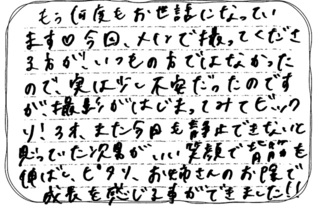 もう何度もお世話になってい
ます♡今回、メインで撮ってくださ
る方が、いつもの方ではなかった
ので、実は少し不安だったのです
が撮影がはじまってみてビック
リ!3才、また今回も静止できないと
思っていた次男がいい笑顔で背筋を
伸ばし、ピタリ、お姉さんのお陰で
成長を感じる事ができました!!